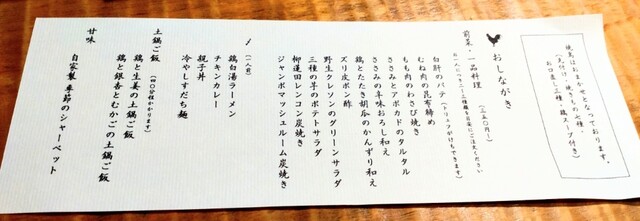 焼鳥はおまかせとなっております。
(先付け・焼きもの七種・
お口直し三種・鶏スープ付き)
おしながき
前菜・一品料理
白肝のパテ
むね肉の昆布締め
もも肉のわさび焼き
ささみとアボカドのタルタル
ささみの辛味おろし和え
鶏とたたき胡瓜のかんずり和え
ズリ皮ポン酢
野生クレソンのグリーンサラダ
三種の芋のポテトサラダ
柳蓮田レンコン炭焼き
ジャンボマッシュルーム炭焼き
(一人前)
鶏白湯ラーメン
チキンカレー
親子丼
冷やしすだち麺
土鍋ご飯
鶏と生姜の土鍋ご飯
鶏と銀杏とむかごの土鍋ご飯
甘味
自家製 季節のシャーベット